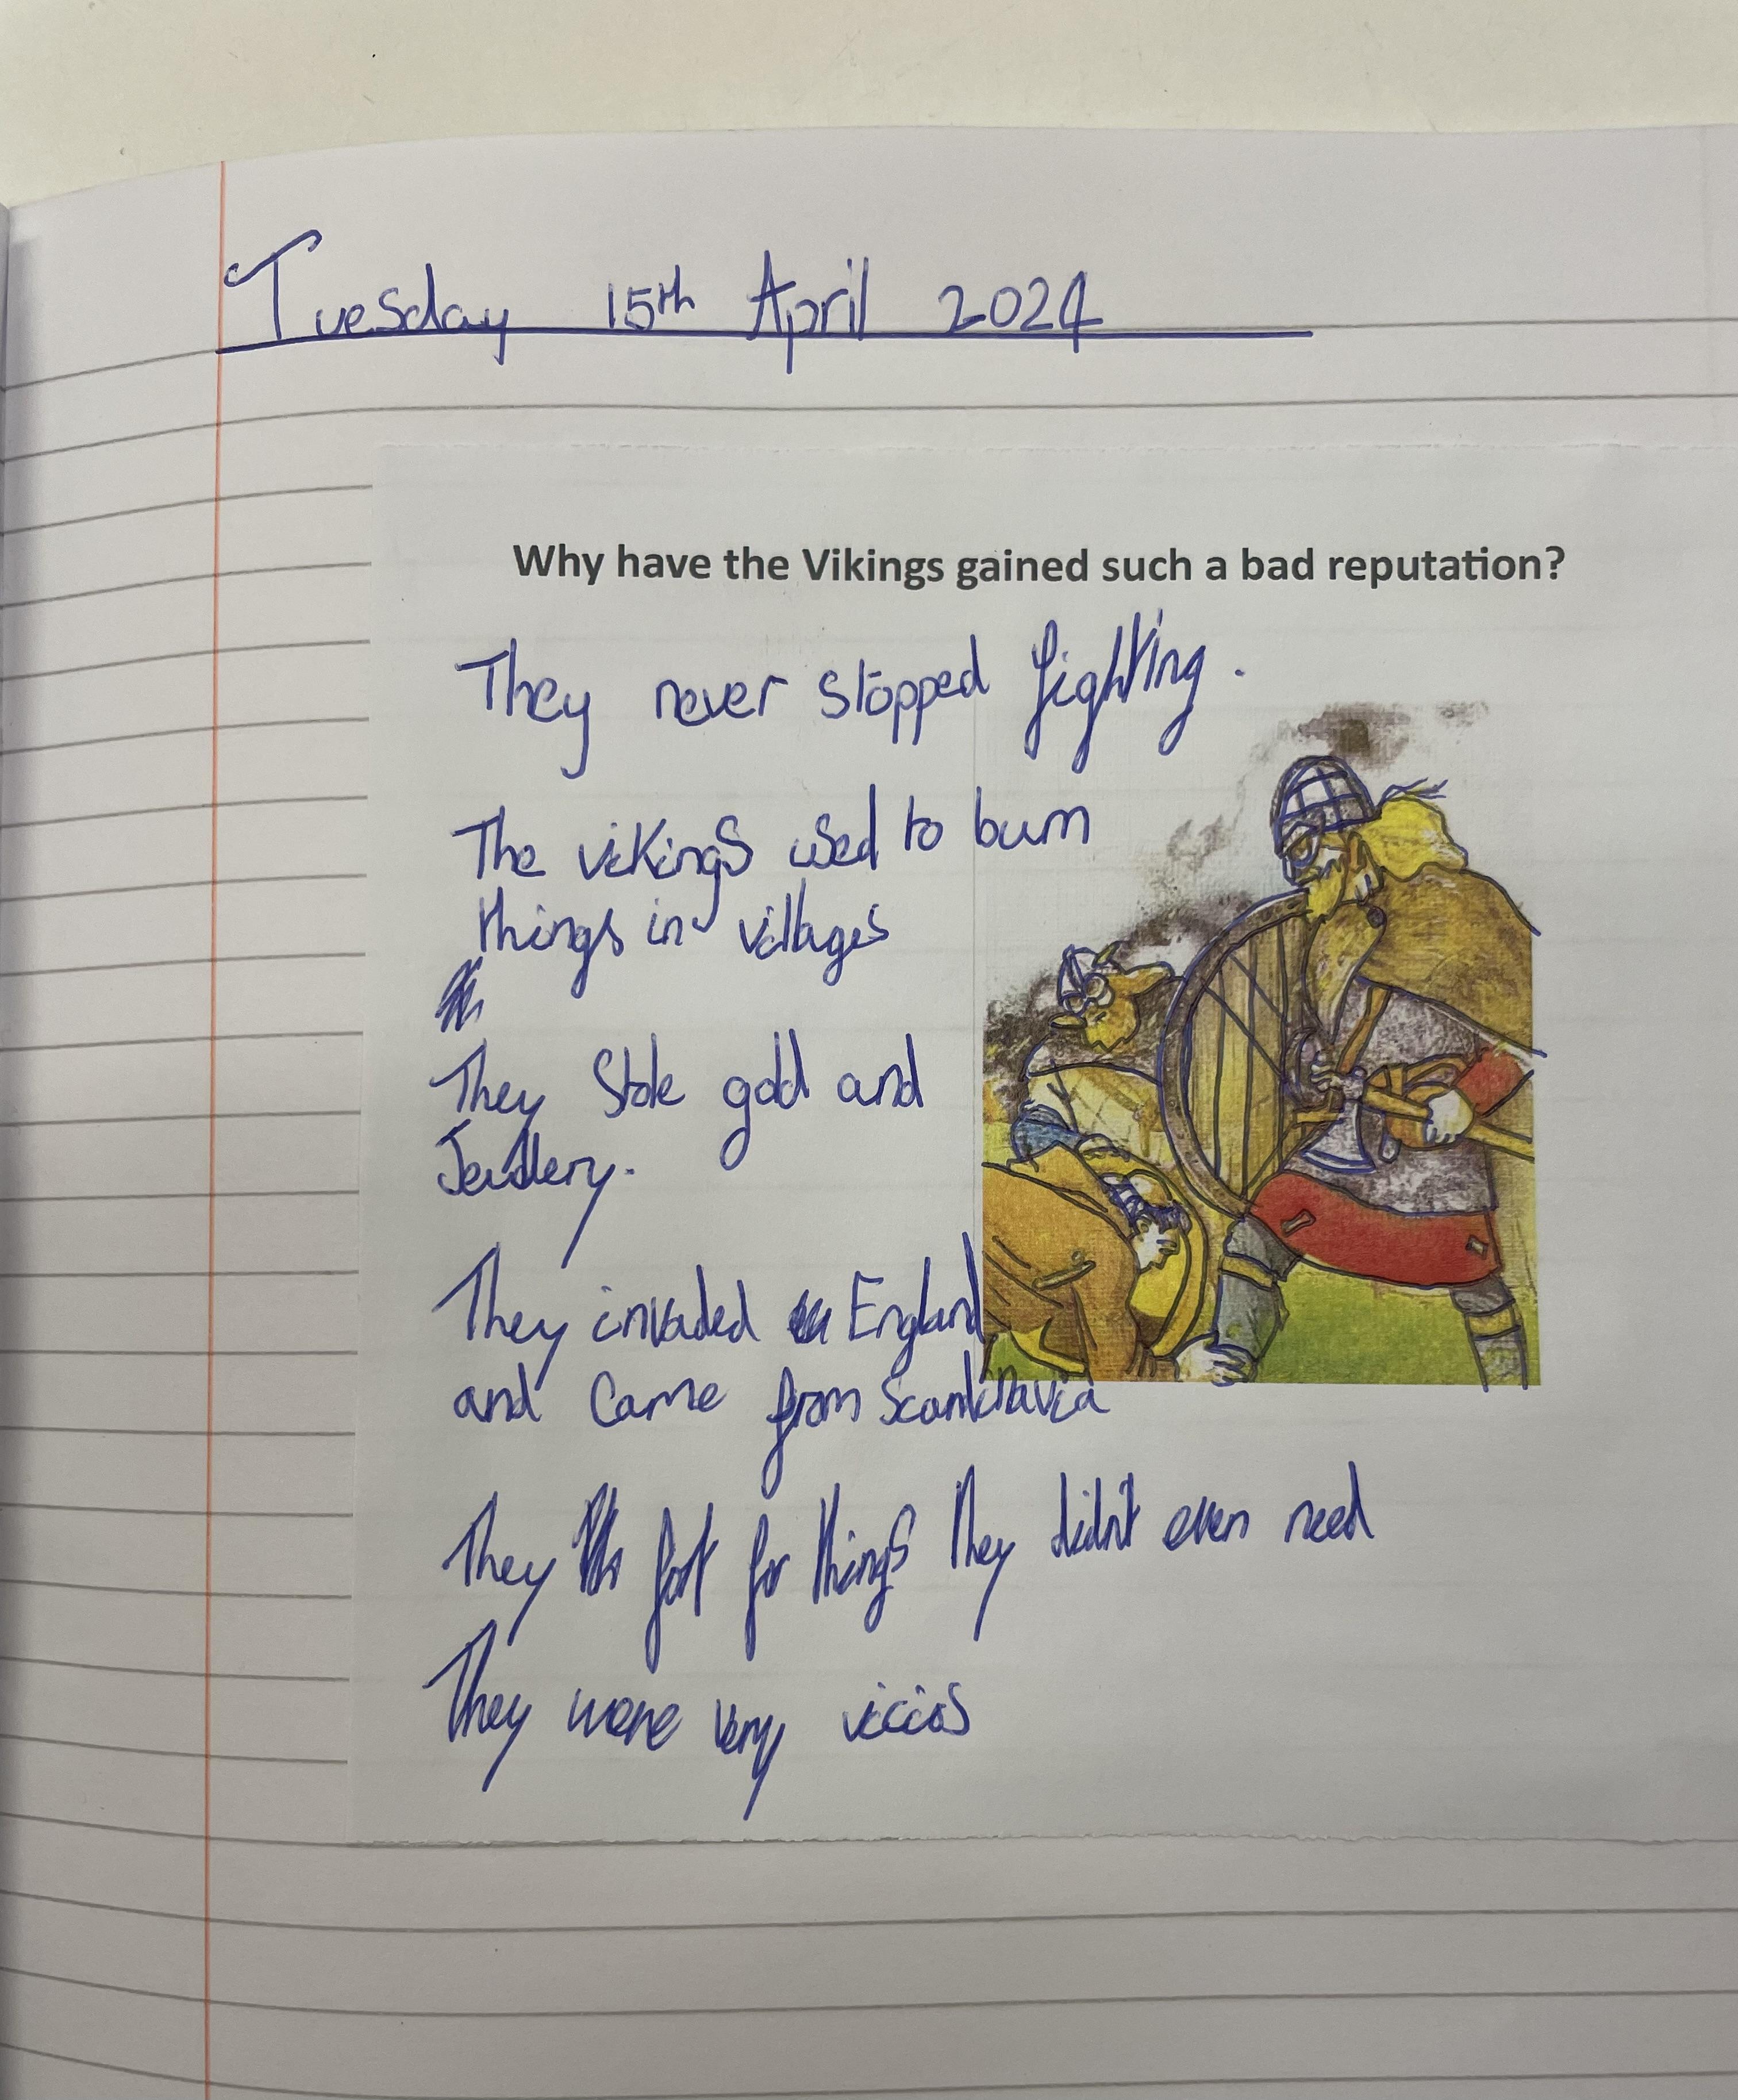 Tuesday 15th April 2024
Why have the Vikings gained such a bad reputation?
They never stopped fighting.
The vikings used to burn
things in villages
They stole gold and
Jewllery.
They invaded England
and came from Scandinavia
They fort for things they didn't even need
They were very vicios